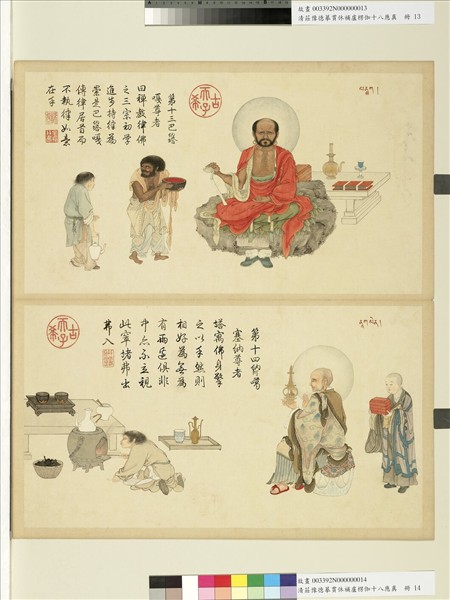 故畫 003392N000000013
清莊豫德摹貫休補盧楞伽十八應真 冊 13
古希天子
第十三巴
嘎尊者
曰禪教律佛
之三宗初學
進步持律爲
傳律居首而
不執律如意
在手
古希天子
第十四
塞納尊者
塔寓佛身擎
之以手然則
相好爲無爲
有兩俱非
中立視
此窣堵弗出
弗入
故畫 003392N000000014
清莊豫德摹貫休補盧楞伽十八應真 冊 14